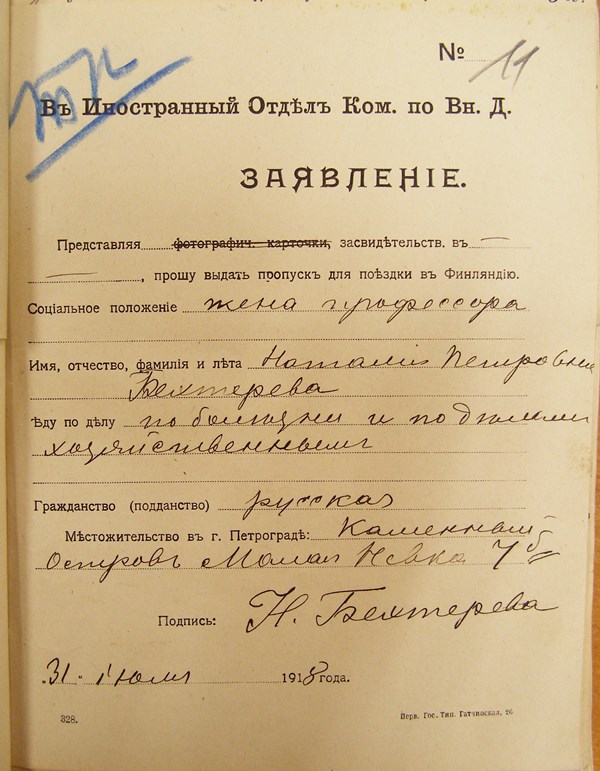 № 11
Въ Иностранный Отдѣлъ Ком. по Вн. Д.
ЗАЯВЛЕНІЕ.
Представляя фотографич. карточки, засвидѣтельств. въ —
—, прошу выдать пропускъ для поѣздки въ Финляндію.
Соціальное положеніе жена профессора
Имя, отчество, фамилія и лѣта Наталія Петровна
Бехтерева
Ѣду по дѣлу по болѣзни и по дѣламъ
хозяйственнымъ
Гражданство (подданство) русская
Мѣстожительство въ г. Петроградѣ: Каменный
Островъ Малая Невка 7б
Подпись: Н. Бехтерева
31. іюля 1918 года.
328.
Перв. Гос. Тип. Гатчинская, 26